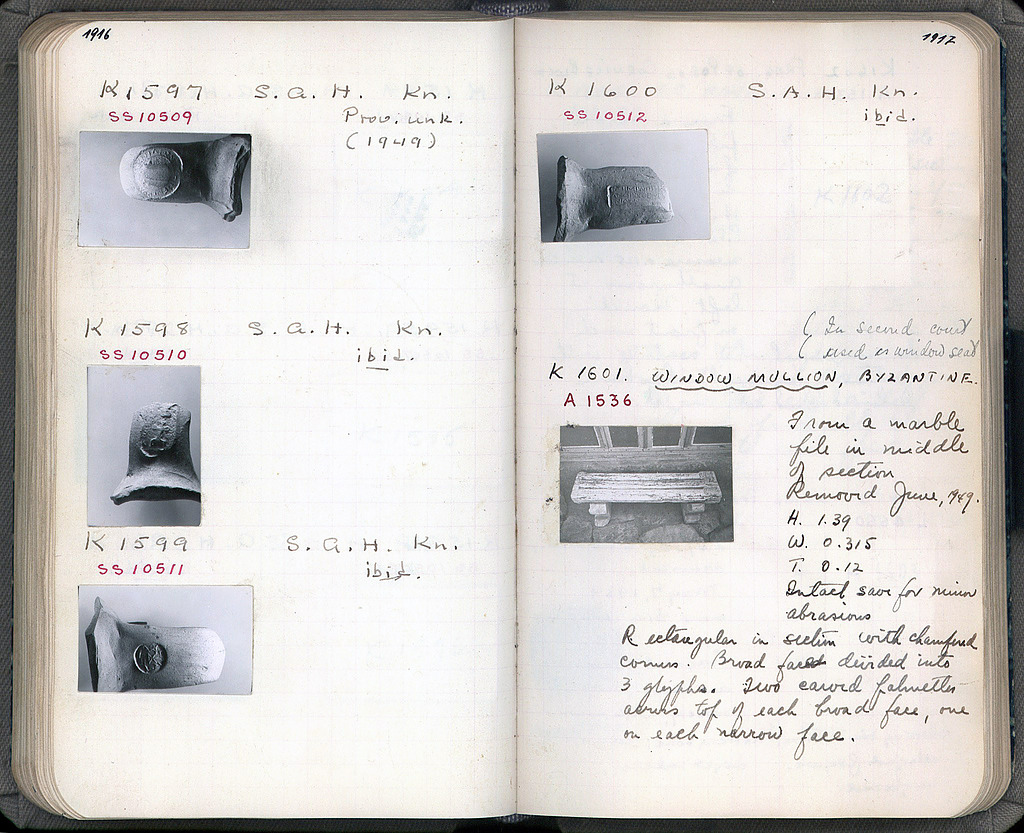 1916
K 1597 S.A.H. Kn.
SS 10509 Prov. unk.
(1949)
K 1598 S.A.H. Kn.
SS 10510 ibid.
K 1599 S.A.H. Kn.
SS 10511 ibid.
1917
K 1600 S.A.H. Kn.
SS 10512 ibid.
( In second court
( used as window seat
K 1601. WINDOW MULLION, BYZANTINE.
A 1536
From a marble
pile in middle
of section
Removed June, 1949.
H. 1.39
W. 0.315
T. 0.12
Intact save for minor
abrasions
Rectangular in section with chamfered
corners. Broad faces divided into
3 glyphs. Two carved palmettes
across top of each broad face, one
on each narrow face.